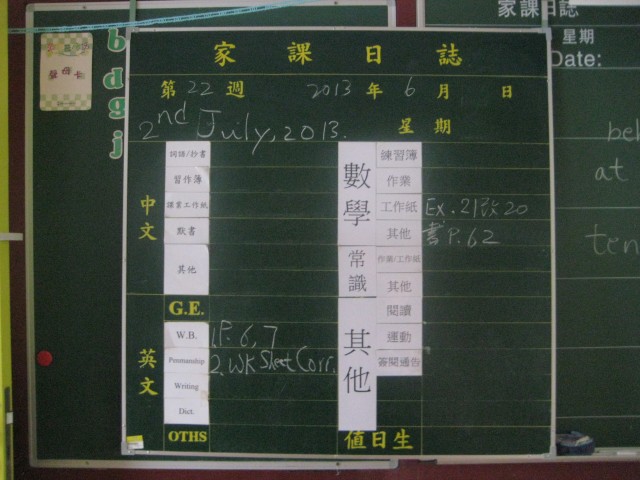 家課日誌
第22週 2013年6月 日
2nd July, 2013. 星期
中文
詞語/抄書
習作簿
課業工作紙
默書
其他
G.E.
英文
W.B. 1.P. 6, 7
Penmanship 2. WK Sheet Corr.
Writing
Dict.
OTHS
數學
練習簿
作業
工作紙 Ex. 21改20
其他 書P.62
常識
作業/工作紙
其他
其他
閱讀
運動
簽閱通告
值日生
b
d
g
j
家課日誌
星期
Date:
beh
at
ten